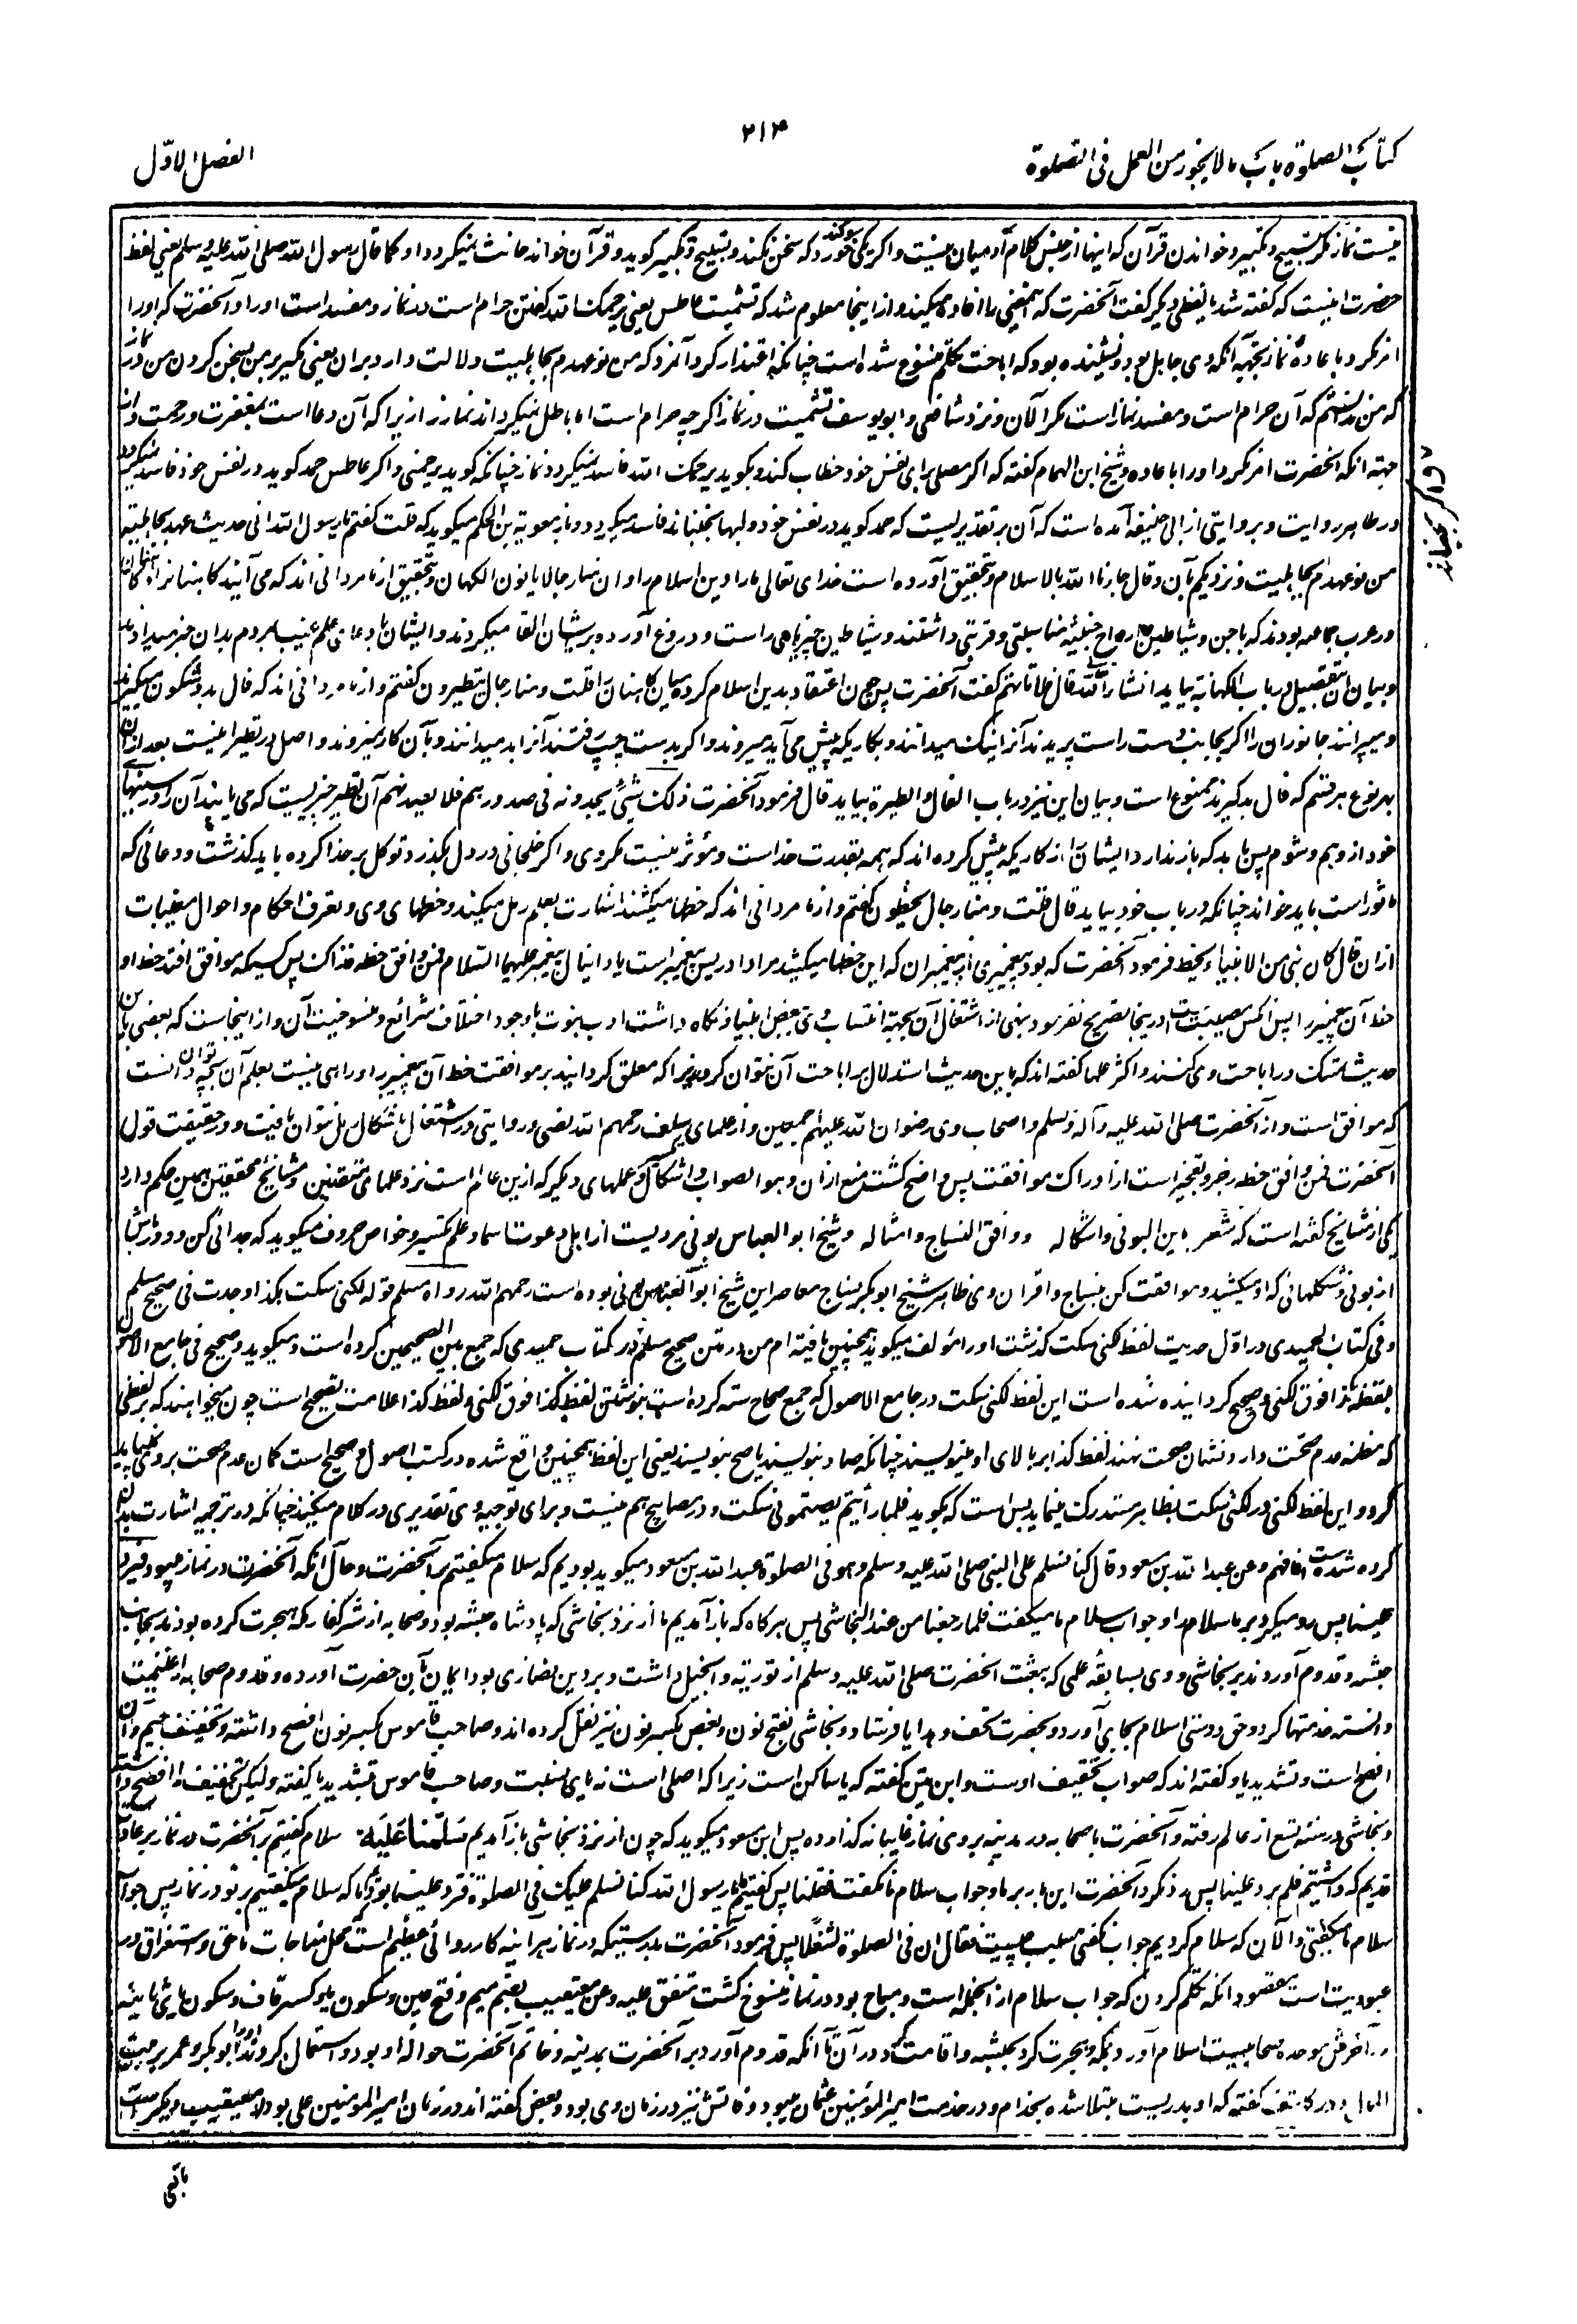 ۴۱۴
کتاب الصلوة باب ما لا یجوز من العمل فی الصلوة
الفصل الاول
نیست نماز مگر تسبیح و تکبیر و خواندن قرآن که اینها از جنس کلام آدمیان نیست و اگر یکی سوگند خورد که سخن نکند و تسبیح و تکبیر گوید و قرآن خواند حانث نمیگردد او کما قال رسول الله صلی الله علیه وسلم یعنی لفظ
حضرت اینست که گفته شد یا لفظی دیگر گفت آنحضرت که همین معنی را افاده میکند و از اینجا معلوم شد که تشمیت عاطس یعنی یرحمک الله گفتن حرام است در نماز و مفسد است او را و آنحضرت که او را
امر نکرد با عادهٔ نماز بجهة آنکه وی جاهل بود و نشنیده بود که اباحت تکلم منسوخ شده است چنانکه اعتذار کرد آنمرد که من نو عهدم بجاهلیت و دلالت دارد بران یعنی نکیر بر من بسخن کردن من در نماز
که من ندانستم که آن حرام است و مفسد نماز است مگر الآن و نزد شافعی و ابو یوسف تشمیت در نماز اگرچه حرام است اما باطل نمیگرداند نماز را زیرا که آن دعا است بمغفرت و رحمت و از
جهة آنکه آنحضرت امر نکرد او را با عاده و شیخ ابن الهمام گفته که اگر مصلی برای نفس خود خطاب کند و بگوید یرحمک الله فاسد نمیگردد نماز چنانکه گوید یرحمنی و اگر عاطس حمد گوید در نفس خود فاسد نمیگردد
در ظاهر روایت و بروایتی از ابی حنیفه آمده است که آن بر تقدیریست که حمد گوید در نفس خود و لبها بجنباند فاسد میگردد و باز معویة بن الحکم میگوید که قلت گفتم یا رسول الله انی حدیث عهد بجاهلیة
من نو عهدام بجاهلیت و نزدیکم بآن و قال جاءنا الله بالاسلام و بتحقیق آورده است خدای تعالی ما را دین اسلام را و ان منا رجالا یاتون الکهان و بتحقیق از ما مردانی اند که می آیند کاهنان را
و در عرب جماعه بودند که با جن و شیاطین و ارواح خبیثه مناسبتی و قربتی داشتند و شیاطین چیزهای راست و دروغ آورده بر ایشان القا میکردند و ایشان بادعای علم غیب مردم بدان خبر میدادند
و بیان این تفصیل در باب الکهانة بیاید انشاء الله تعالی قال فلا تأتهم گفت آنحضرت پس چون اعتقاد بدین اسلام کرده میان کاهنان قلت و منا رجال یتطیرون گفتم و از ما مردانی اند که فال بد و شگون میگیرند
و میپرانند جانوران را اگر بجانب دست راست پریدند آنرا نیک میدانند و بکاریکه پیش می آید میروند و اگر بدست چپ رفتند آنرا بد میدانند و بآن کار نمیروند و اصل در تطیر اینست بعد از آن
بهر نوع هر قسم که فال بد گیرند ممنوع است و بیان این نیز در باب الفال و الطیرة بیاید قال فرمود آنحضرت ذلک شئ یجدونه فی صدورهم فلا یصدنهم آن تطیر چیزیست که می یابند آن را در سینهای
خود از وهم و شوم پس باید که باز ندارد ایشان از کاریکه پیش کرده اند که همه بقدرت خداست و مؤثر نیست مگر وی و اگر خلجانی در دل بگذرد توکل بر خدا کرده باید گذشت و دعائی که
ماثور است باید خواند چنانکه در باب خود بیاید قال قلت و منا رجال یخطون گفتم و از ما مردانی اند که خطها میکشند اشارت بعلم رمل میکند و خطهای وی و تعرف احکام و احوال مغیبات
ازان قال کان نبی من الانبیاء یخط فرمود آنحضرت که بود پیغمبری از پیغمبران که این خطها میکشید مراد ادریس پیغمبر است یا دانیال پیغمبر علیهما السلام فمن وافق خطه فذاک پس کسیکه موافق افتد خط او
خط آن پیغمبر را پس آنکس مصیبت است و اینجا بتصریح نفرمود نهی از اشتغال آن بجهة انتساب وی ببعض انبیا و نگاه داشت ادب نبوت با وجود اختلاف شرائع و منسوخیت آن و از اینجاست که بعضی باین
حدیث متمسک در اباحت وی کنند و اکثر علما گفته اند که باین حدیث استدلال بر اباحت آن نتوان کرد زیرا که معلق گردانید بر موافقت خط آن پیغمبر و راهی نیست بعلم آن بچه توان دانست
که موافق است و از آنحضرت صلی الله علیه و آله وسلم و اصحاب وی رضوان الله علیهم اجمعین و از علمای سلف رحمهم الله نصی و روایتی در اشتغال باشکال رمل نتوان یافت و در حقیقت قول
آنحضرت فمن وافق خطه زجر و تعجیز است از ادراک موافقت پس واضح گشت منع ازان و هو الصواب و اشکال و عملهای دیگر که ازین عالم است نزد علمای متقنین و مشائخ محققین همین حکم دارد
یکی از مشائخ گفته است که شعر باین البونی و اشکاله ووافق النساج و امثاله و شیخ ابو العباس بونی مردیست از اهل دعوت اسما و علم تکسیر و خواص حروف میگوید که جدائی کن و دور باش
از بونی و شکلهائی که او میکشید و موافقت کن بنساج و اقران وی ظاهر شیخ ابوبکر نساج معاصر این شیخ ابو العباس بونی بوده است رحمهم الله رواه مسلم قوله لکنی سکت هکذا وجدت فی صحیح مسلم
و فی کتاب الحمیدی در اول حدیث لفظ لکنی سکت گذشت او را مؤلف میگوید همچنین یافته ام من در متن صحیح مسلم و در کتاب حمیدی که جمع بین الصحیحین کرده است و میگوید و صحیح فی جامع الاصول
بلفظة کذا فوق لکنی و صحیح گردانیده شده است این لفظ لکنی سکت در جامع الاصول که جمع صحاح سته کرده است بنوشتن لفظ کذا فوق لکنی و لفظ کذا علامت تصحیح است چون میخواهند که بر لفظی
که مظنه عدم صحت دارد نشان صحت نهند لفظ کذا بر بالای او مینویسند چنانکه صاد بنویسند یا صح بنویسند یعنی این لفظ همچنین واقع شده در کتب اصول و صحیح است گمان عدم صحت برو نباید
کرد و این لفظ لکنی در لکنی سکت بظاهر مستدرک مینماید بس است که بگوید فلما رأیتهم یصمتونی سکت و در مصابیح هم نیست و برای توجیه وی تقدیری در کلام میکنند چنانکه در ترجمه اشارت بدان
کرده شده است فافهم وعن عبد الله بن مسعود قال کنا نسلم علی النبی صلی الله علیه وسلم وهو فی الصلوة عبد الله بن مسعود میگوید بودیم که سلام میگفتیم بر آنحضرت و حال آنکه آنحضرت در نماز میبود فیرد
علینا پس رد میکرد بر ما سلام را و جواب سلام ما میگفت فلما رجعنا من عند النجاشی پس هرگاه که باز آمدیم ما از نزد نجاشی که پادشاه حبشه بود و صحابه از شر کفار مکه هجرت کرده بودند بجانب
حبشه و قدوم آوردند بر نجاشی و وی بسابقه علمی که ببعثت آنحضرت صلی الله علیه وسلم از توریة و انجیل داشت و بر دین نصاری بود ایمان بآن حضرت آورده و قدوم صحابه را غنیمت
دانسته خدمتها کرد و حق دوستی اسلام بجای آورد و بحضرت تحف و هدایا فرستاد و نجاشی بفتح نون و بعض بکسر نون نیز نقل کرده اند و صاحب قاموس کسر نون افصح داشته و تخفیف جیم و آن
افصح است و تشدید یا و گفته اند که صواب تخفیف اوست و ابن متین گفته که یا ساکن است زیرا که اصلی است نه یای نسبت و صاحب قاموس تشدید یا گفته ولیکن تخفیف را افصح داشته
و نجاشی در سنه تسع از عالم رفته و آنحضرت با صحابه در مدینه بر وی نماز غایبانه گذارده پس ابن مسعود میگوید که چون از نزد نجاشی باز آمدیم سلمنا علیه سلام گفتیم بر آنحضرت در نماز بر عادت
قدیم که داشتیم فلم یرد علینا پس رد نکرد آنحضرت این بار بر ما و جواب سلام ما نگفت فقلنا پس گفتیم ما یا رسول الله کنا نسلم علیک فی الصلوة فترد علینا بودیم ما که سلام میگفتیم بر تو در نماز پس جواب
سلام ما میگفتی و الآن که سلام کردیم جواب نگفتی سبب چیست فقال ان فی الصلوة لشغلا پس فرمود آنحضرت بدرستیکه در نماز هر آینه کار و روائی عظیم است محل مناجات با حق و استغراق در
عبودیت است مقصود آنکه تکلم کردن که جواب سلام از انجمله است و مباح بود در نماز منسوخ گشت متفق علیه وعن معیقیب بضم میم و فتح عین و سکون یا و کسر قاف و سکون یای ثانیه
در آخرش موحده صحابیست اسلام آورد بمکه و هجرت کرد بحبشه و اقامت کرد در آن تا آنکه قدوم آورد بر آنحضرت بمدینه و خاتم آنحضرت حوالهٔ او بود و استعمال کردند او را ابوبکر و عمر بر بیت
المال و در کاشف گفته که او بدریست مبتلا شده بجذام و در خدمت امیر المؤمنین عثمان میبود وفاتش نیز در زمان وی بود و بعض گفته اند در زمان امیر المؤمنین علی بود
باقی